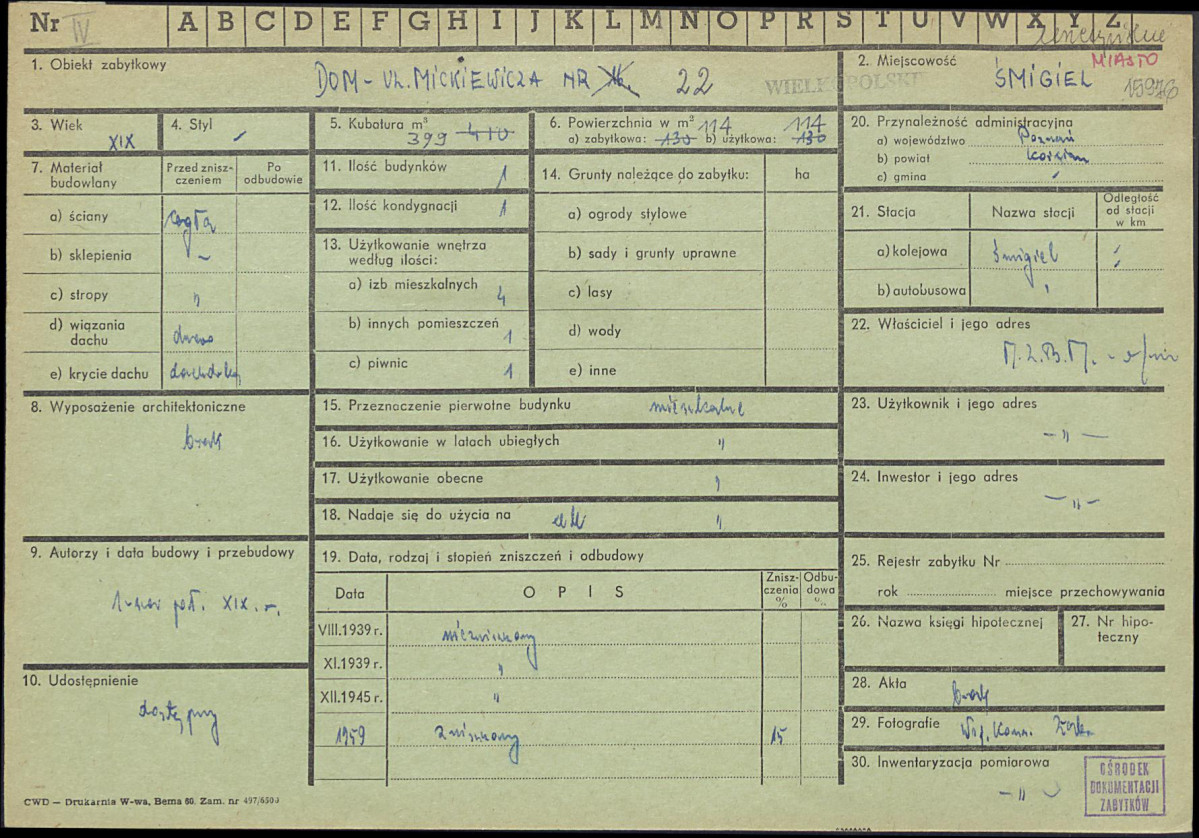 Nr IV A B C D E F G H I J K L M N O P R S T U V W X Y Z
1. Obiekt zabytkowy DOM - UL. MICKIEWICZA NR 16. 22
WIELKOPOLSKIE
2. Miejscowość MIASTO
ŚMIGIEL 15976
3. Wiek XIX
4. Styl -
5. Kubatura m³
399 410
6. Powierzchnia w m² 114 114
a) zabytkowa: 130 b) użytkowa: 130
20. Przynależność administracyjna
a) województwo Poznań
b) powiat Kościan
c) gmina -
7. Materiał budowlany
Przed zniszczeniem
Po odbudowie
a) ściany cegła
b) sklepienia -
c) stropy "
d) wiązania dachu drewno
e) krycie dachu dachówka
11. Ilość budynków 1
12. Ilość kondygnacji 1
13. Użytkowanie wnętrza
według ilości:
a) izb mieszkalnych 4
b) innych pomieszczeń 1
c) piwnic 1
14. Grunty należące do zabytku: ha
a) ogrody stylowe
b) sady i grunty uprawne
c) lasy
d) wody
e) inne
21. Stacja
Nazwa stacji
Odległość
od stacji
w km
a) kolejowa Śmigiel
b) autobusowa
22. Właściciel i jego adres
M.Z.B.M.
8. Wyposażenie architektoniczne
brak
15. Przeznaczenie pierwotne budynku mieszkalne
16. Użytkowanie w latach ubiegłych "
17. Użytkowanie obecne "
18. Nadaje się do użycia na "
23. Użytkownik i jego adres
- " -
24. Inwestor i jego adres
- " -
9. Autorzy i data budowy i przebudowy
poł. XIX. w.
19. Data, rodzaj i stopień zniszczeń i odbudowy
Data
OPIS
Znisz-
czenia
%
Odbu-
dowa
%
VIII.1939 r. niezniszczony
XI.1939 r. "
XII.1945 r. "
1959 zniszczony 15
10. Udostępnienie
dostępny
25. Rejestr zabytku Nr
rok miejsce przechowywania
26. Nazwa księgi hipotecznej
27. Nr hipo-
teczny
28. Akta brak
29. Fotografie Woj. Kons. Zab.
30. Inwentaryzacja pomiarowa
- " -
OŚRODEK
DOKUMENTACJI
ZABYTKÓW
CWD — Drukarnia W-wa, Bema 60. Zam. nr 497/6500